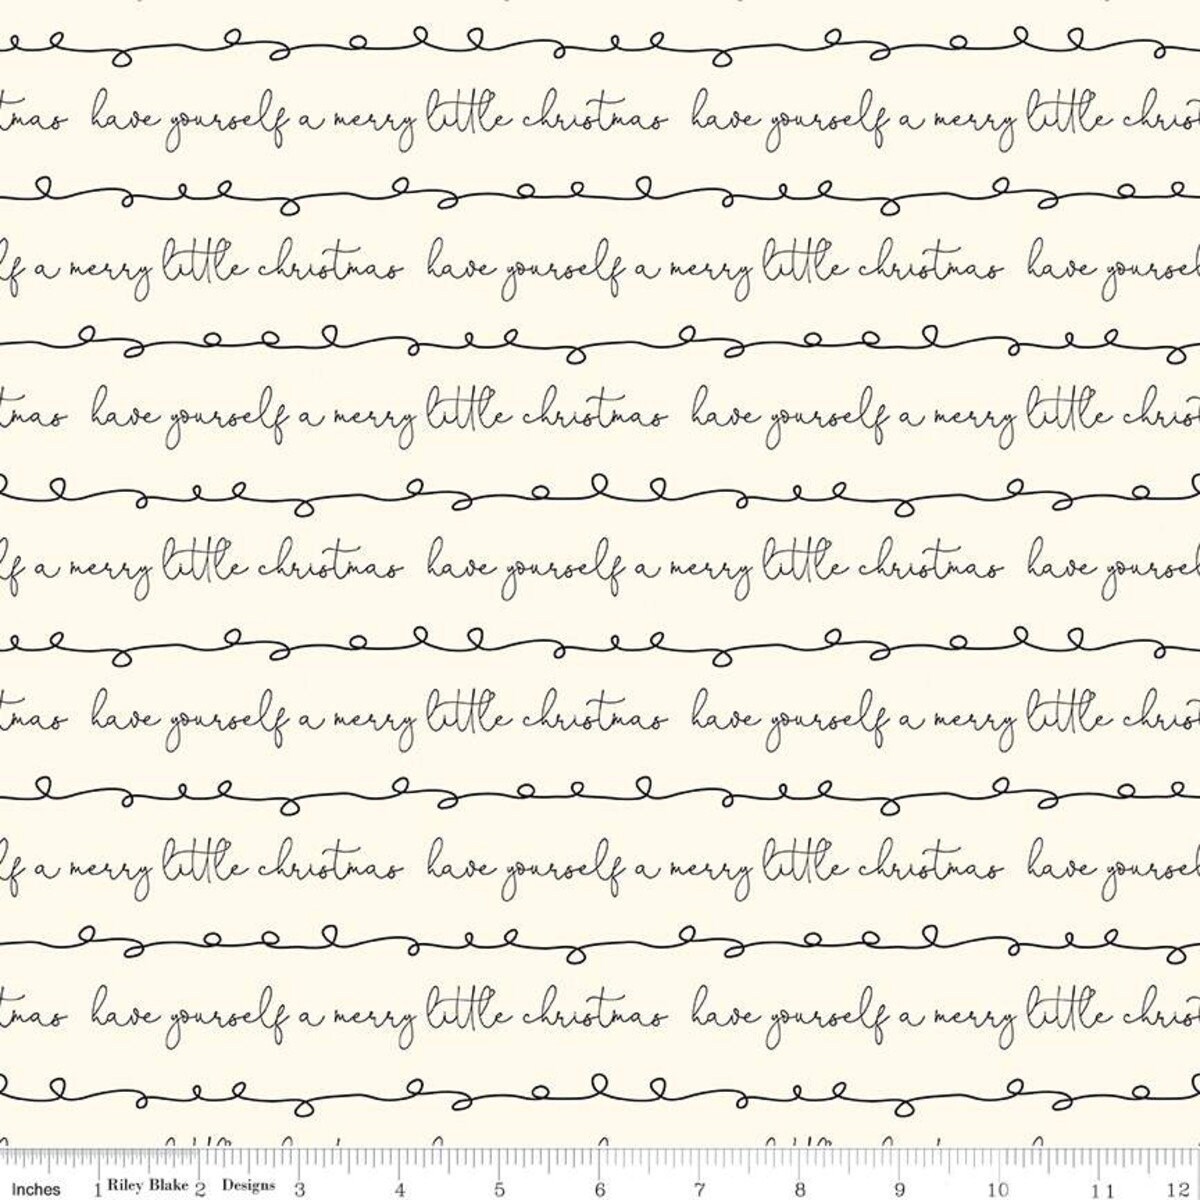 tmas have yourself a merry little christmas have yourself a merry little christ
lf a merry little christmas have yourself a merry little christmas have yoursel
tmas have yourself a merry little christmas have yourself a merry little christ
lf a merry little christmas have yourself a merry little christmas have yoursel
tmas have yourself a merry little christmas have yourself a merry little christ
lf a merry little christmas have yourself a merry little christmas have yoursel
tmas have yourself a merry little christmas have yourself a merry little christ
Inches 1 Riley Blake 2 Designs 3 4 5 6 7 8 9 10 11 12